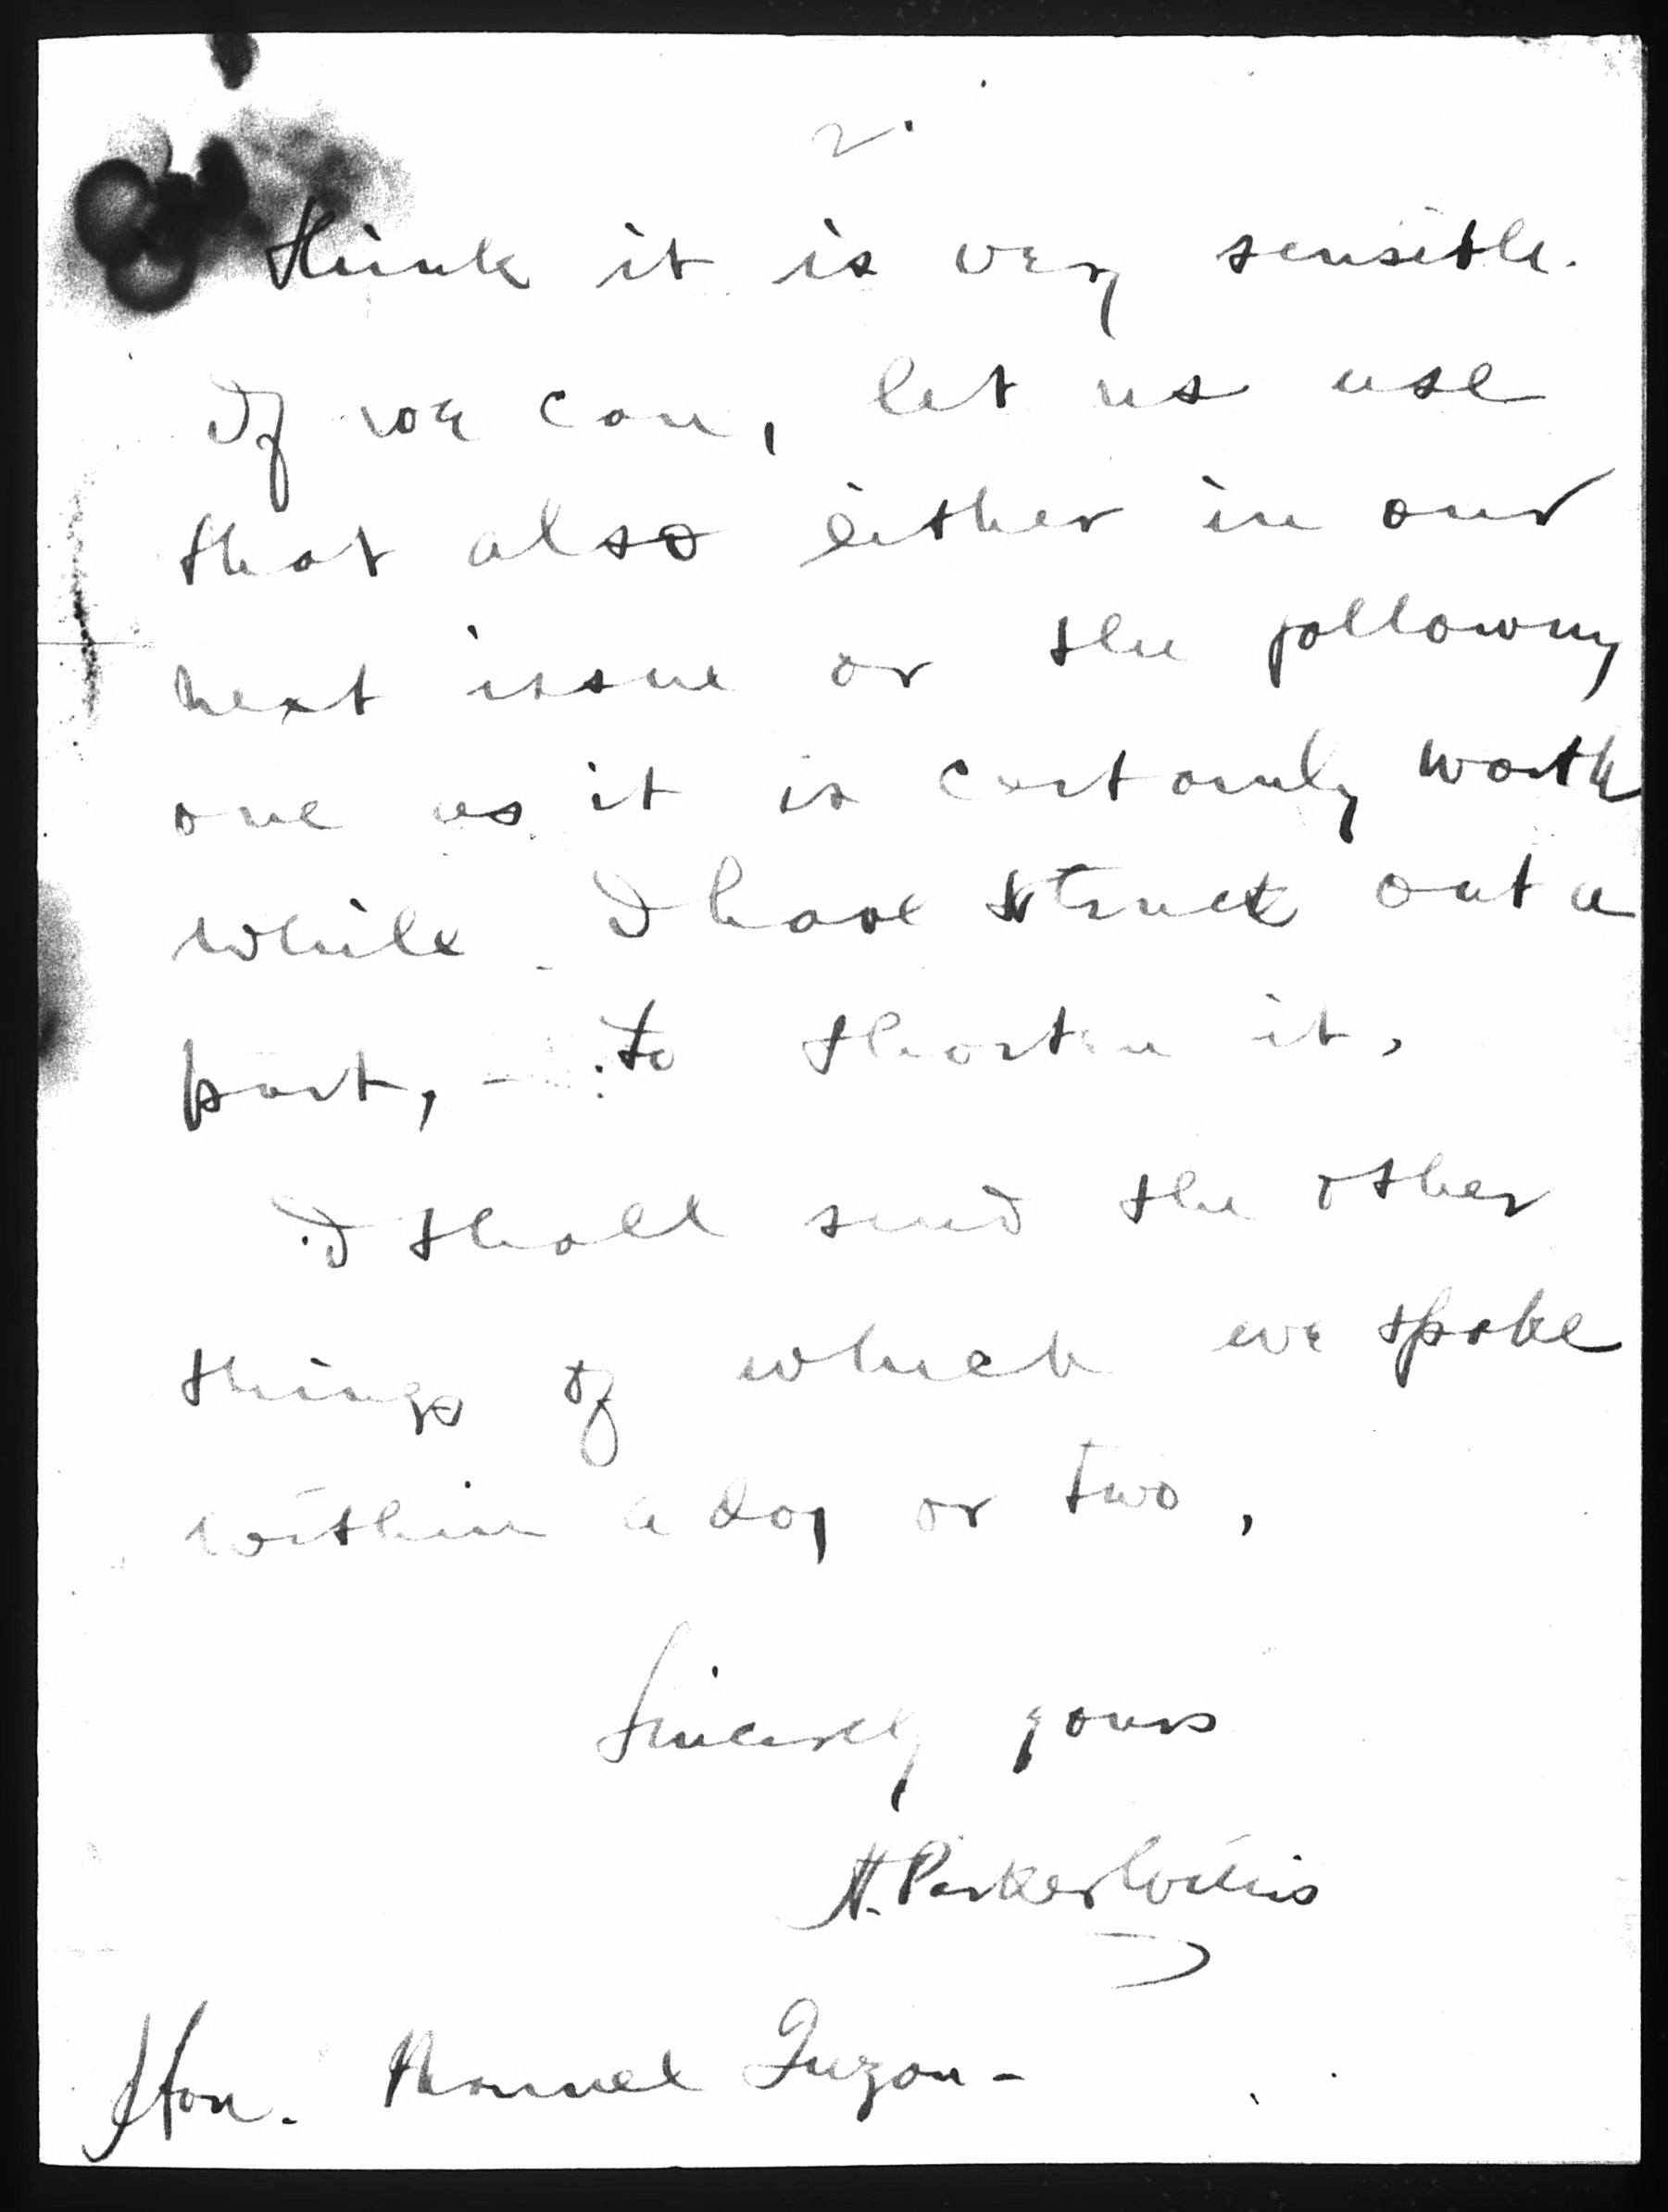 2.
think it is very sensible.
If we can, let us use
that also either in our
next issue or the following
one as it is certainly worth
while. I have struck out a
part, - to shorten it.
I shall send the other
things of which we spoke
within a day or two.
Sincerely yours
H. Parker Willis
Hon. Manuel Quezon -